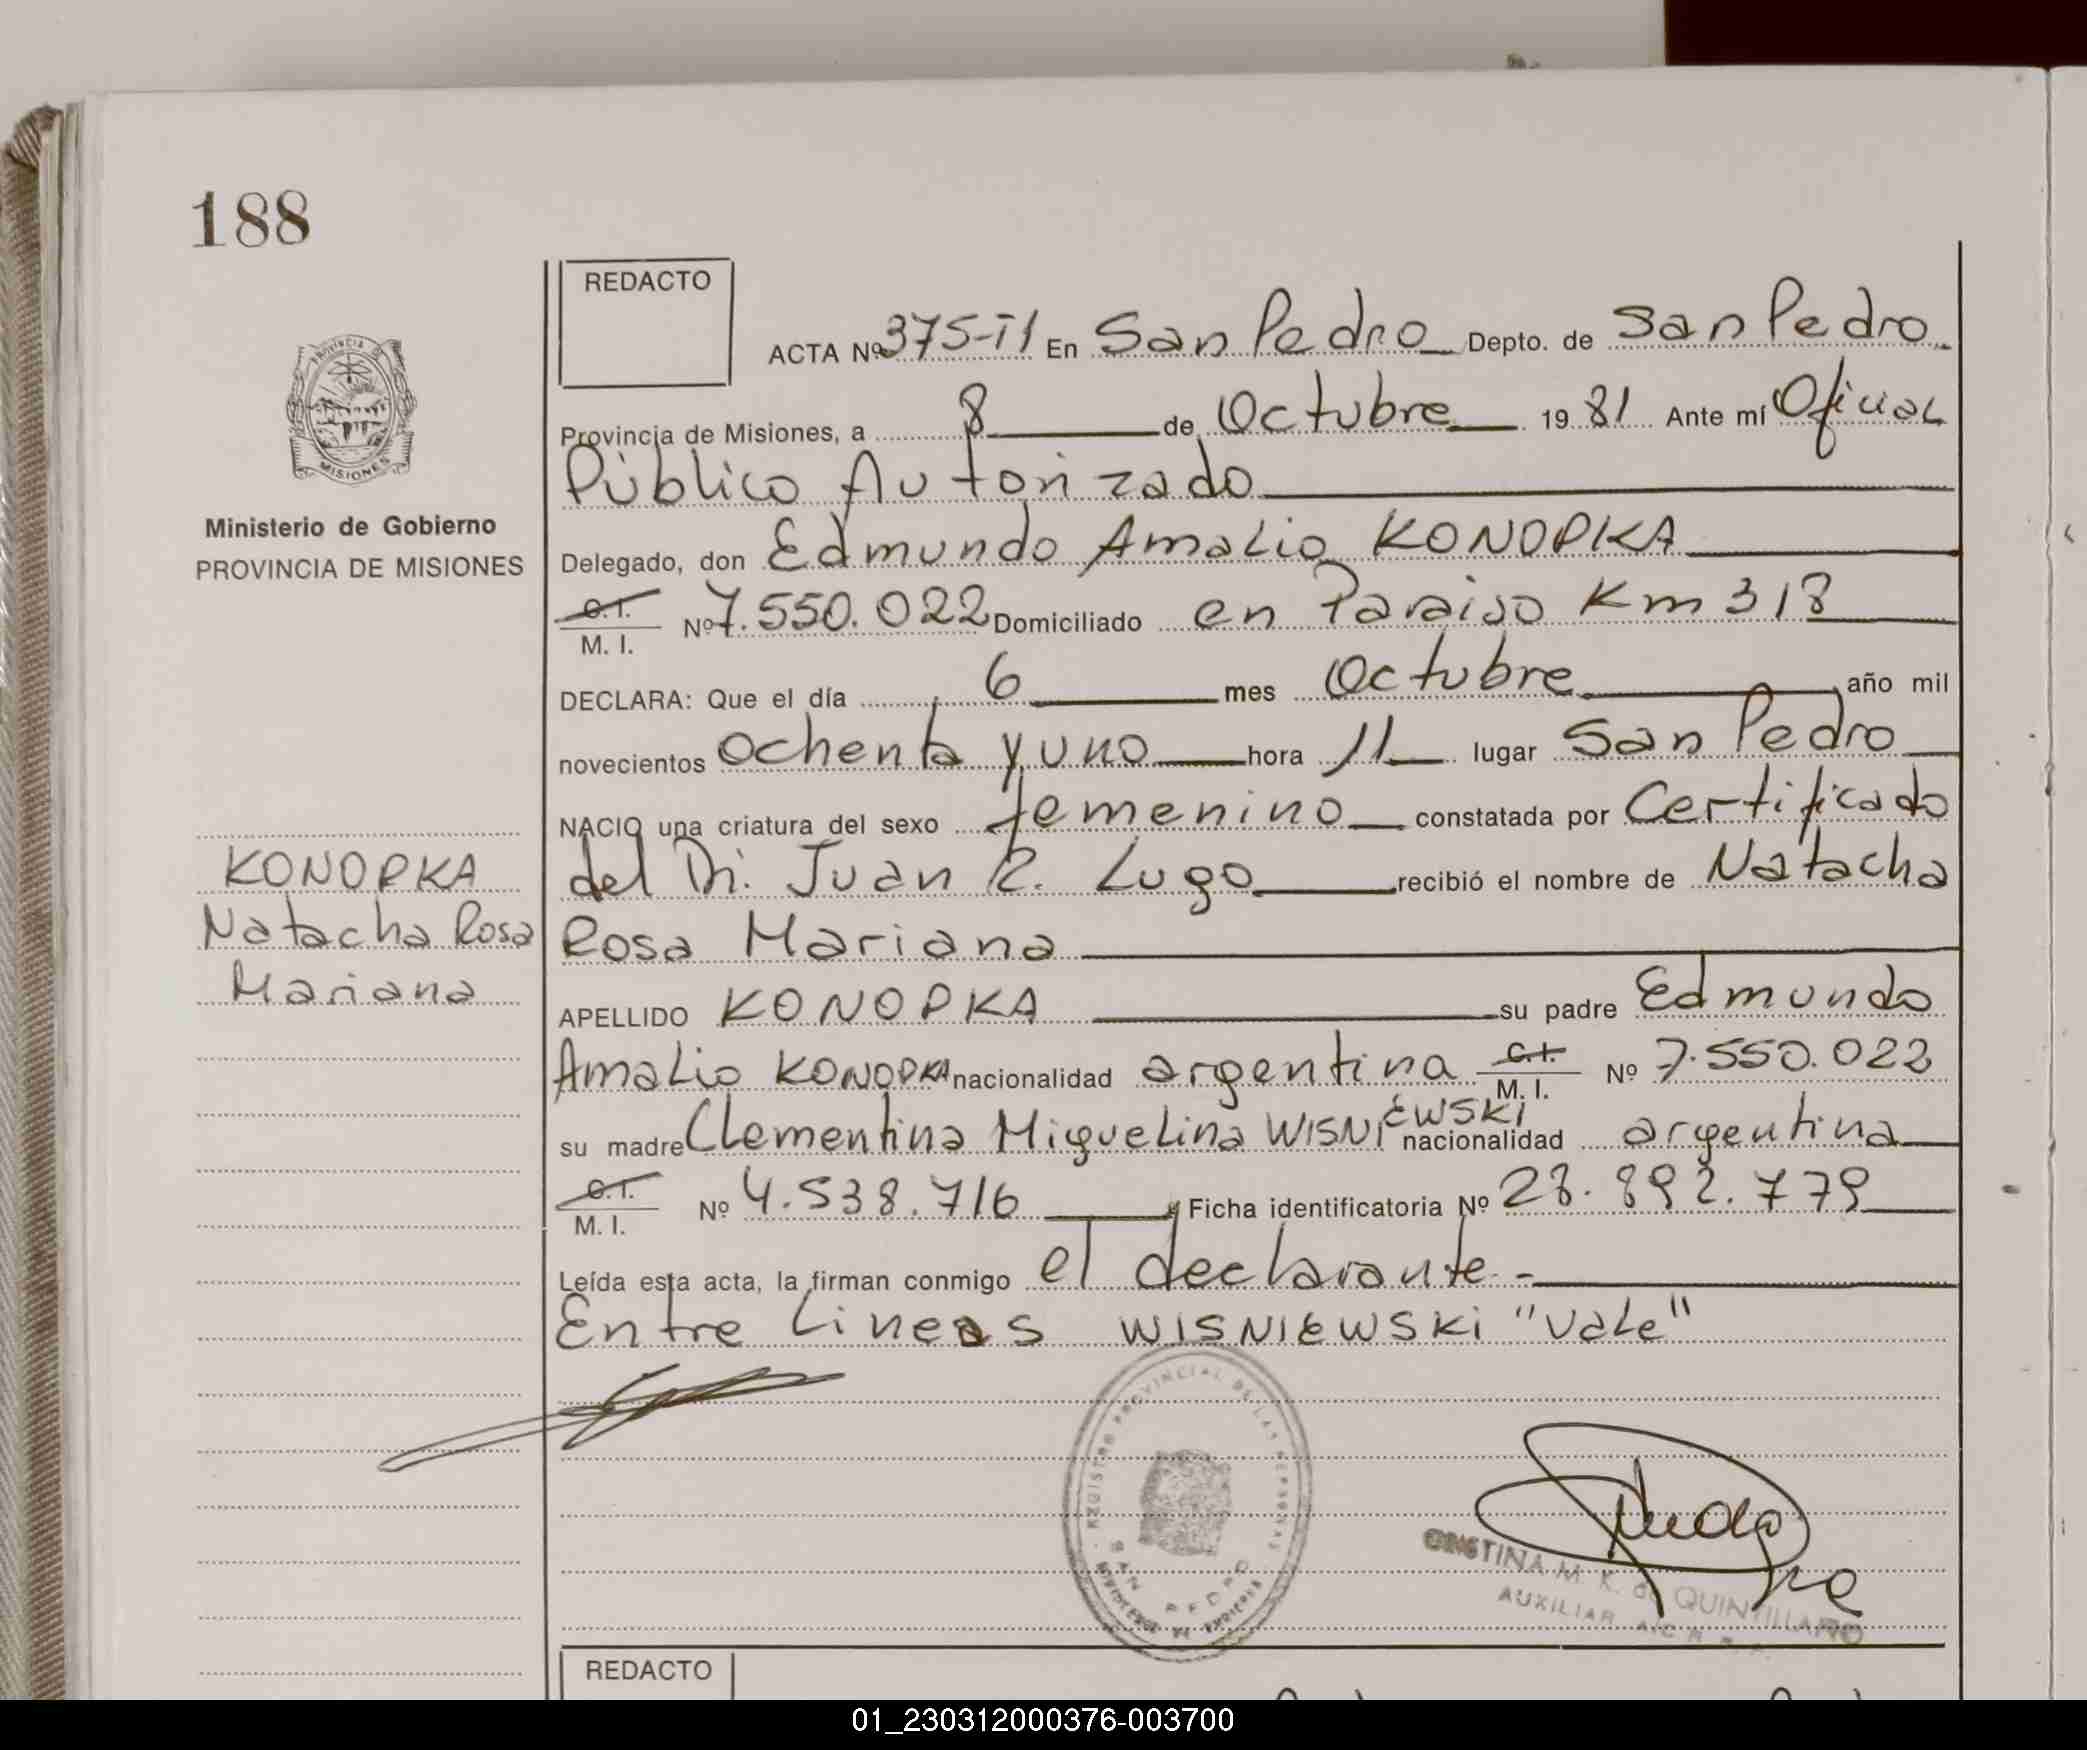 188
REDACTO
ACTA Nº 375-T1 En San Pedro Depto. de San Pedro
Provincia de Misiones, a 8 de Octubre 1981 Ante mí Oficial
Público Autorizado
Delegado, don Edmundo Amalio KONOPKA
C.I. M. I. Nº 7.550.022 Domiciliado en Paraiso Km 318
DECLARA: Que el día 6 mes Octubre año mil
novecientos ochenta y uno hora 11 lugar San Pedro
NACIO una criatura del sexo femenino constatada por Certificado
del Dr. Juan R. Lugo recibió el nombre de Natacha
Rosa Mariana
APELLIDO KONOPKA su padre Edmundo
Amalio KONOPKA nacionalidad argentina C.I. M. I. Nº 7.550.022
su madre Clementina Miguelina WISNIEWSKI nacionalidad argentina
C.I. M. I. Nº 4.538.716 y Ficha identificatoria Nº 28.892.779
Leída esta acta, la firman conmigo el declarante.-
Entre Lineas WISNIEWSKI "Vale"
PROVINCIA DE
MISIONES
Ministerio de Gobierno
PROVINCIA DE MISIONES
KONOPKA
Natacha Rosa
Mariana
REGISTRO PROVINCIAL DE LAS PERSONAS
SAN PEDRO
CRISTINA M. K. de QUINTILLANO
AUXILIAR
REDACTO
01_230312000376-003700